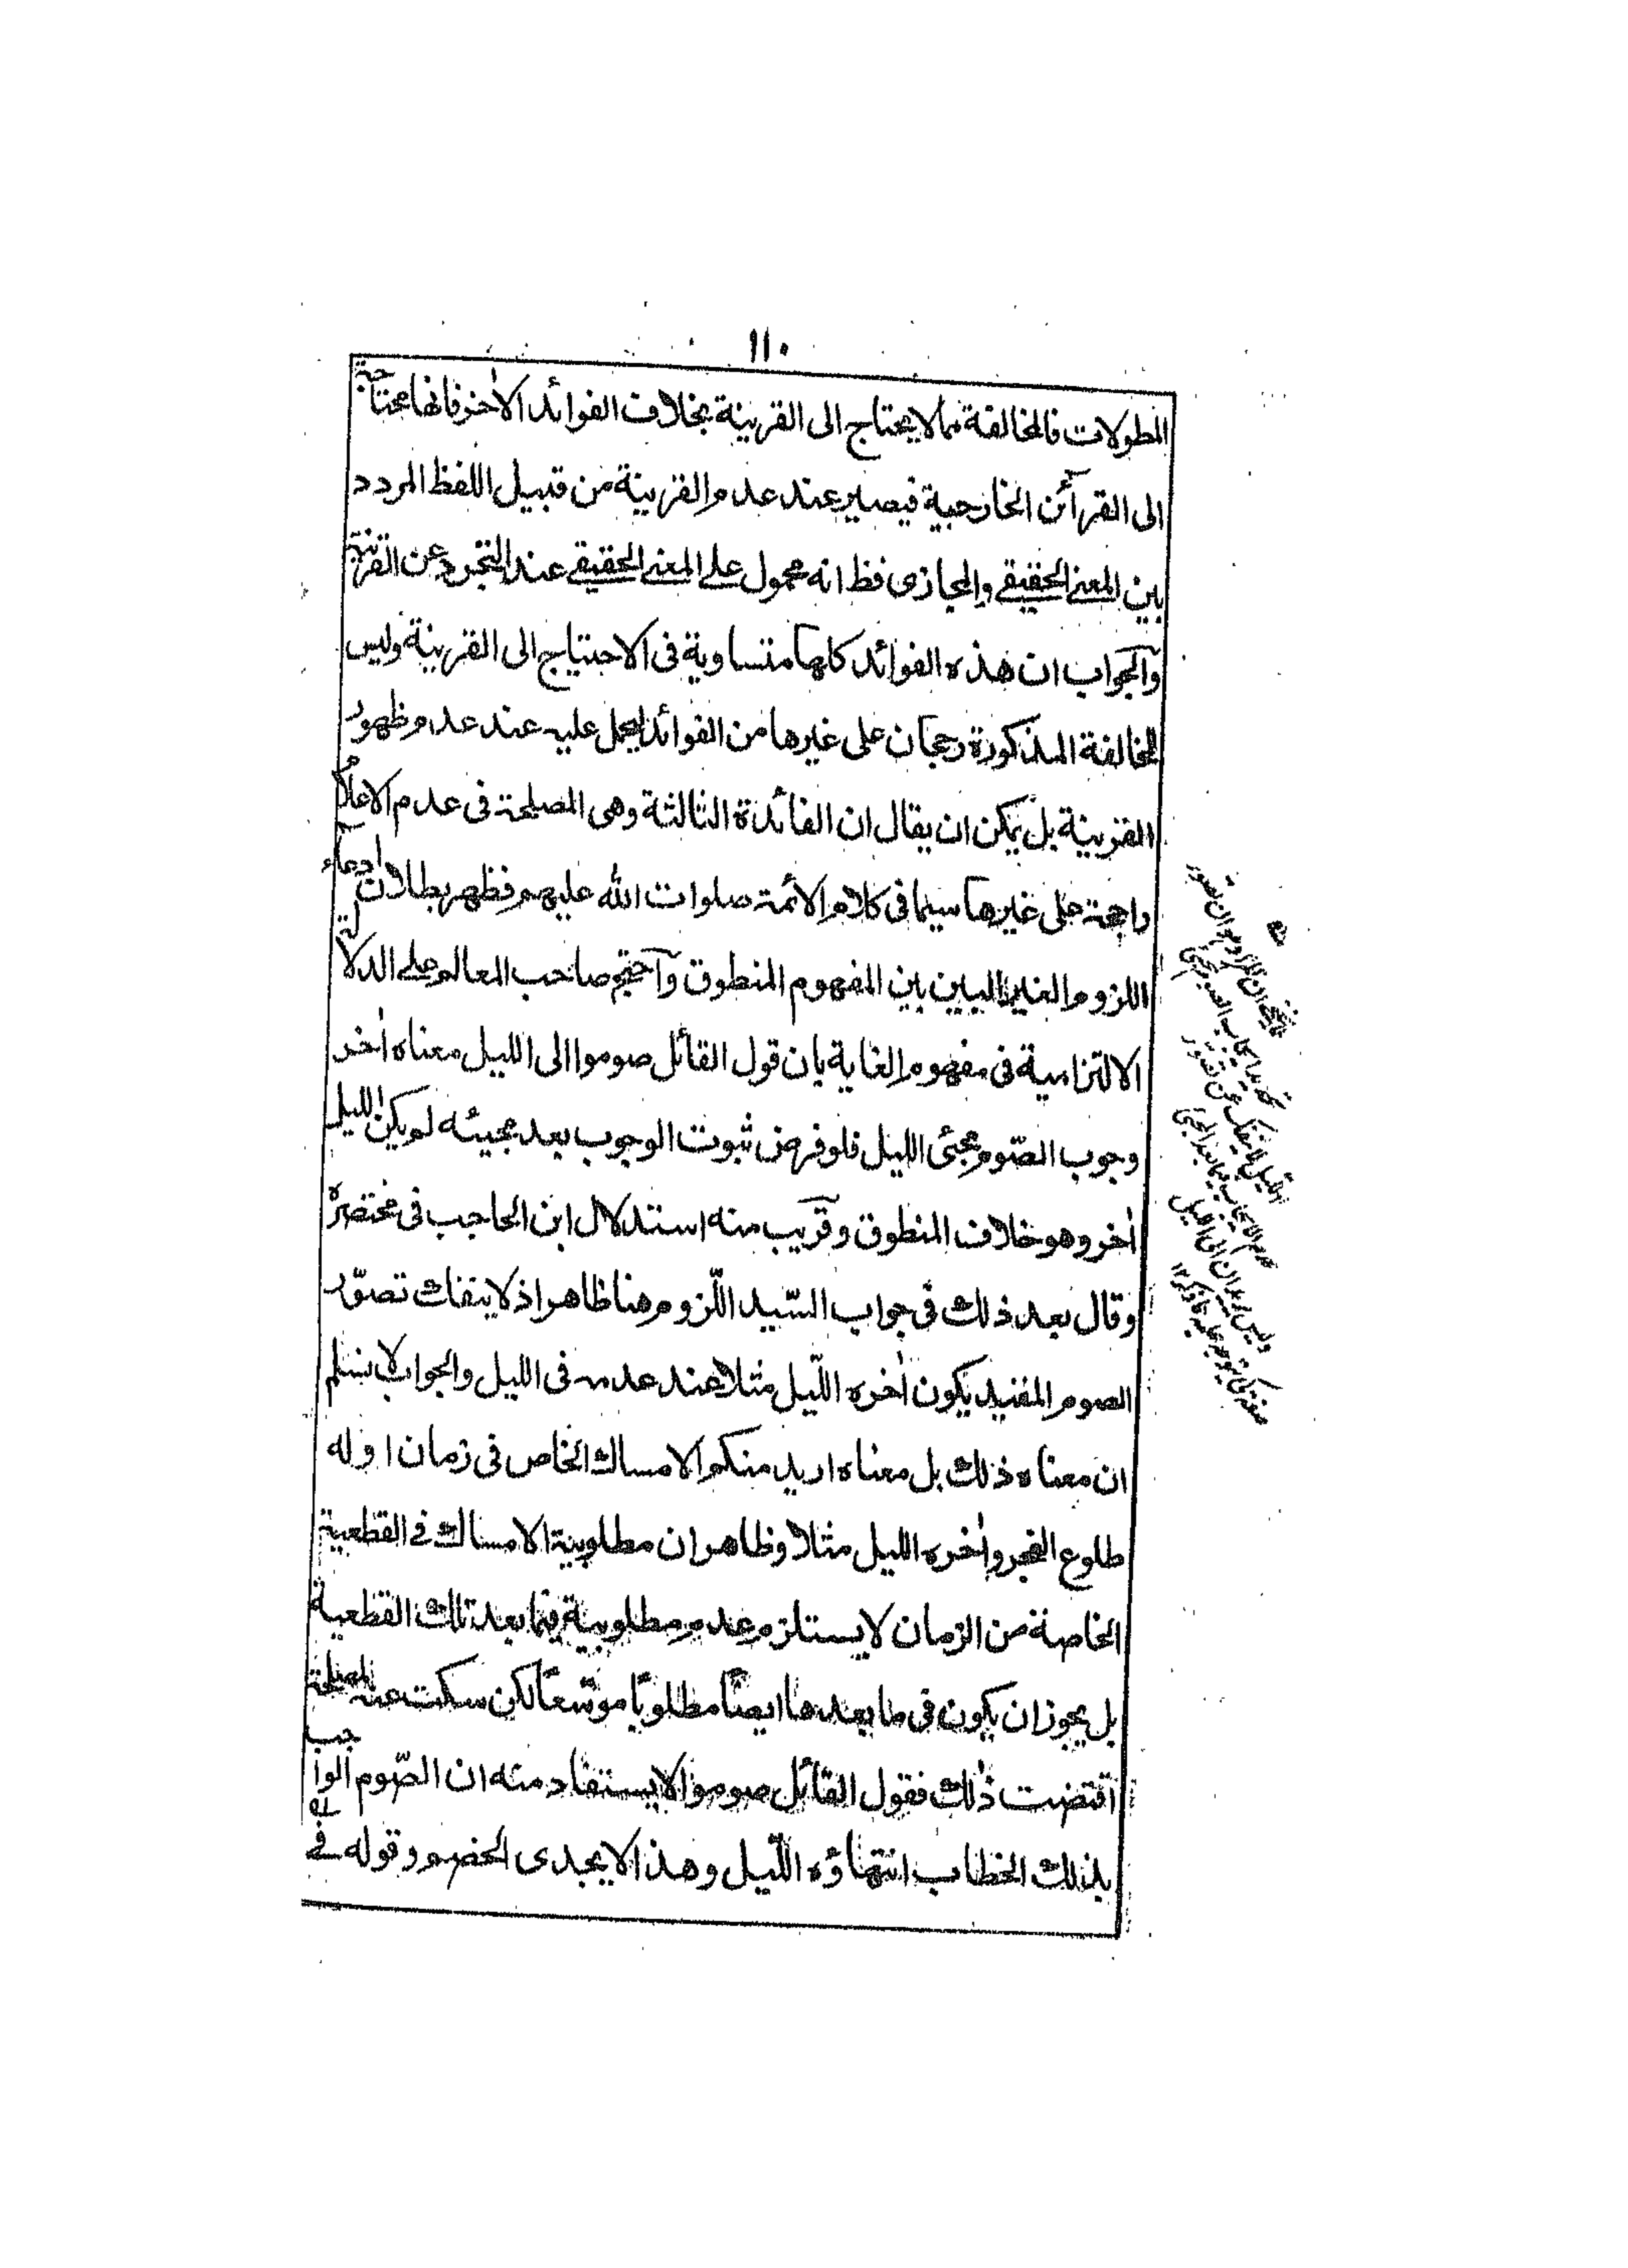 ١١٠
المطولات فالمخالفة مما لا يحتاج الى القرينة بخلاف الفوائد الاخر فانها محتاجة
الى القرآئن الخارجية فيصير عند عدم القرينة من قبيل اللفظ المردد
بين المعنى الحقيقي والمجازى فظ انه محمول على المعنى الحقيقي عند التجرد عن القرينة
والجواب ان هذه الفوائد كلها متساوية فى الاحتياج الى القرينة وليس
للمخالفة المذكورة رجحان على غيرها من الفوائد ليحمل عليه عند عدم ظهور
القرينة بل يمكن ان يقال ان الفائدة الثالثة وهى المصلحة فى عدم الاعلام
راجحة على غيرها سيما فى كلام الائمة صلوات الله عليهم فظهر بطلان ادعاء
اللزوم الغير البين بين المفهوم المنطوق وآحتج صاحب المعالم على الدلالة
الالتزامية فى مفهوم الغاية بان قول القائل صوموا الى الليل معناه اٰخر
وجوب الصّوم مجئ الليل فلو فرض ثبوت الوجوب بعد مجيئه لم يكن الليل
اٰخر وهو خلاف المنطوق وقريب منه استدلال ابن الحاجب فى مختصره
وقال بعد ذلك فى جواب السّيد اللّزوم هنا ظاهر اذ لا ينفك تصوّر
الصوم المقيد بكون اٰخره اللّيل مثلا عند عدمه فى الليل والجواب لا نسلم
ان معناه ذلك بل معناه اريد منكم الامساك الخاص فى زمان اوله
طلوع الفجر واٰخره الليل مثلا وظاهر ان مطلوبية الامساك فى القطعية
الخاصة من الزمان لا يستلزم عدم مطلوبية فيما بعد تلك القطعية
بل يجوز ان يكون فى ما بعدها ايضًا مطلوبًا موسّعًا لكن سكت عنه لمصلحة
اقتضت ذلك فقول القائل صوموا لا يستفاد منه ان الصّوم الواجب
بذلك الخطاب انتهاؤه اللّيل وهذا لا يجدى الخصم وقوله فى